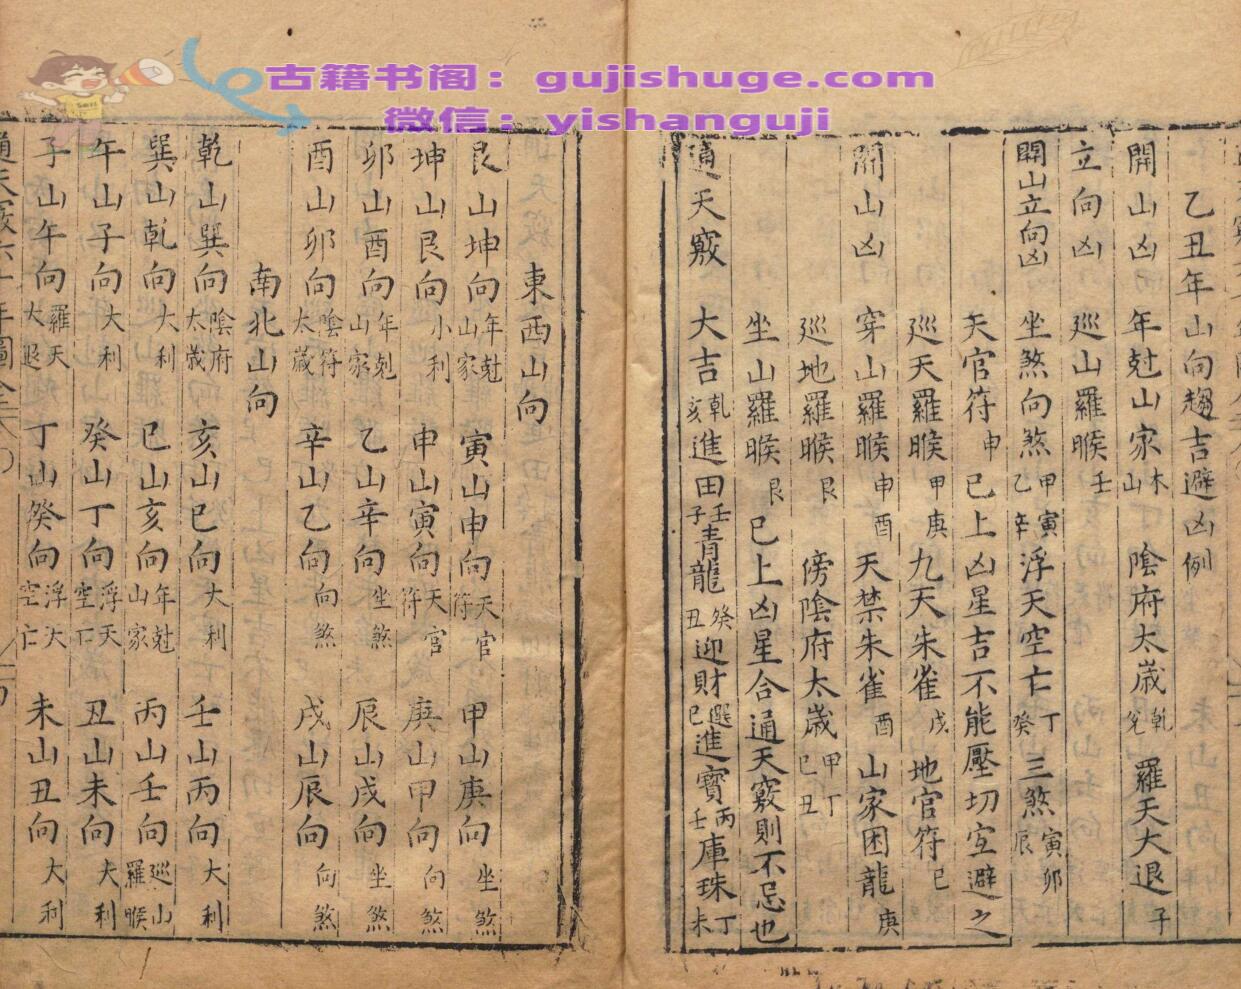 古籍书阁：gujishuge.com
微信：yishanguji
乙丑年山向趨吉避凶例
開山凶 年尅山家 木山 陰府太歲 乾兌 羅天大退 子
立向凶 廵山羅睺 壬
開山立向凶 坐煞向煞 甲寅乙辛 浮天空亡 丁癸 三煞 寅卯辰
天官符 申 已上凶星吉不能壓切宜避之
廵天羅睺 甲庚 九天朱雀 戌 地官符 巳
開山凶 穿山羅睺 申酉 天禁朱雀 酉 山家困龍 庚
廵地羅睺 艮 傍陰府太歲 甲丁巳丑
坐山羅睺 艮 已上凶星合通天竅則不忌也
通天竅 大吉 乾亥 進田 壬子 青龍 癸丑 迎財 巽巳 進寶 丙壬 庫珠 丁未
東西山向
艮山坤向 年尅山家 寅山申向 天官符 甲山庚向 坐煞
坤山艮向 小利 申山寅向 天官符 庚山甲向 向煞
卯山酉向 年尅山家 乙山辛向 坐煞 辰山戌向 坐煞
酉山卯向 陰符太歲 辛山乙向 向煞 戌山辰向 向煞
南北山向
乾山巽向 陰府太歲 亥山巳向 大利 壬山丙向 大利
巽山乾向 大利 巳山亥向 年尅山家 丙山壬向 廵山羅睺
午山子向 大利 癸山丁向 浮天空亡 丑山未向 大利
子山午向 羅天大退 丁山癸向 浮天空亡 未山丑向 大利